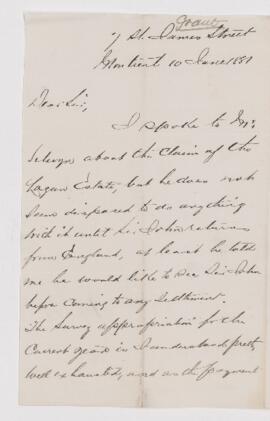 Grant
7 St. James Street
Montreal 10 June 1881
Dear Sir,
I spoke to Mr.
Selwyn about the Claim of the
Logan Estate, but he does not
seem disposed to do anything
with it until Sir John returns
from England, at least he told
me he would like to see Sir John
before coming to any Settlement.
The Survey appropriation for the
Current year is I understand pretty
well exhausted, and as the payment